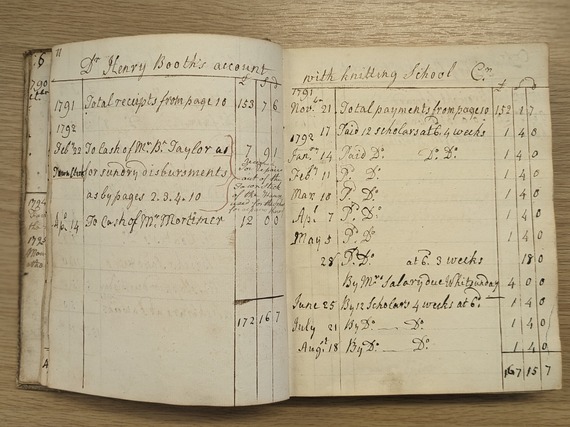 11
Dr Henry Booth's account
£ s d
1791 Total receipts from page 10 153 7 6
1792
Feb: 22 To Cash of Mr. Br. Taylor as 7 9 1
for sundry disbursments
as by pages 2. 3. 4. 10
Ap: 14 To Cash of Mrs. Mortimer 12 0 0
172 16 7
with knitting School Cr.
£ s d
1791
Nov. 21 Total payments from page 10 152 1 7
17 Paid 12 scholars at 6. 4 weeks 1 4 0
1792
Jan: 14 Paid Do. Do. Do. 1 4 0
Feb: 11 P. Do. 1 4 0
Mar 10 P. Do. 1 4 0
Ap: 7 P. Do. 1 4 0
May 5 P. Do. 1 4 0
28 P. Do. at 6. 3 weeks 18 0
By Mrs. Salary due Whitsunday 4 0 0
June 25 By 12 Scholars 4 weeks at 6d 1 4 0
July 21 By Do. __ Do. 1 4 0
Aug: 18 By Do. __ Do. 1 4 0
167 15 7